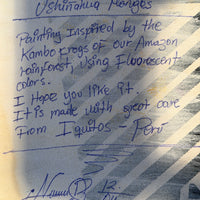 Ushiñahua Monges
Painting inspired by the
Kambo frogs of our Amazon
rainforest, Using Fluorescent
colors.
I Hope you like it.
It is made with great care
From Iquitos - Perú